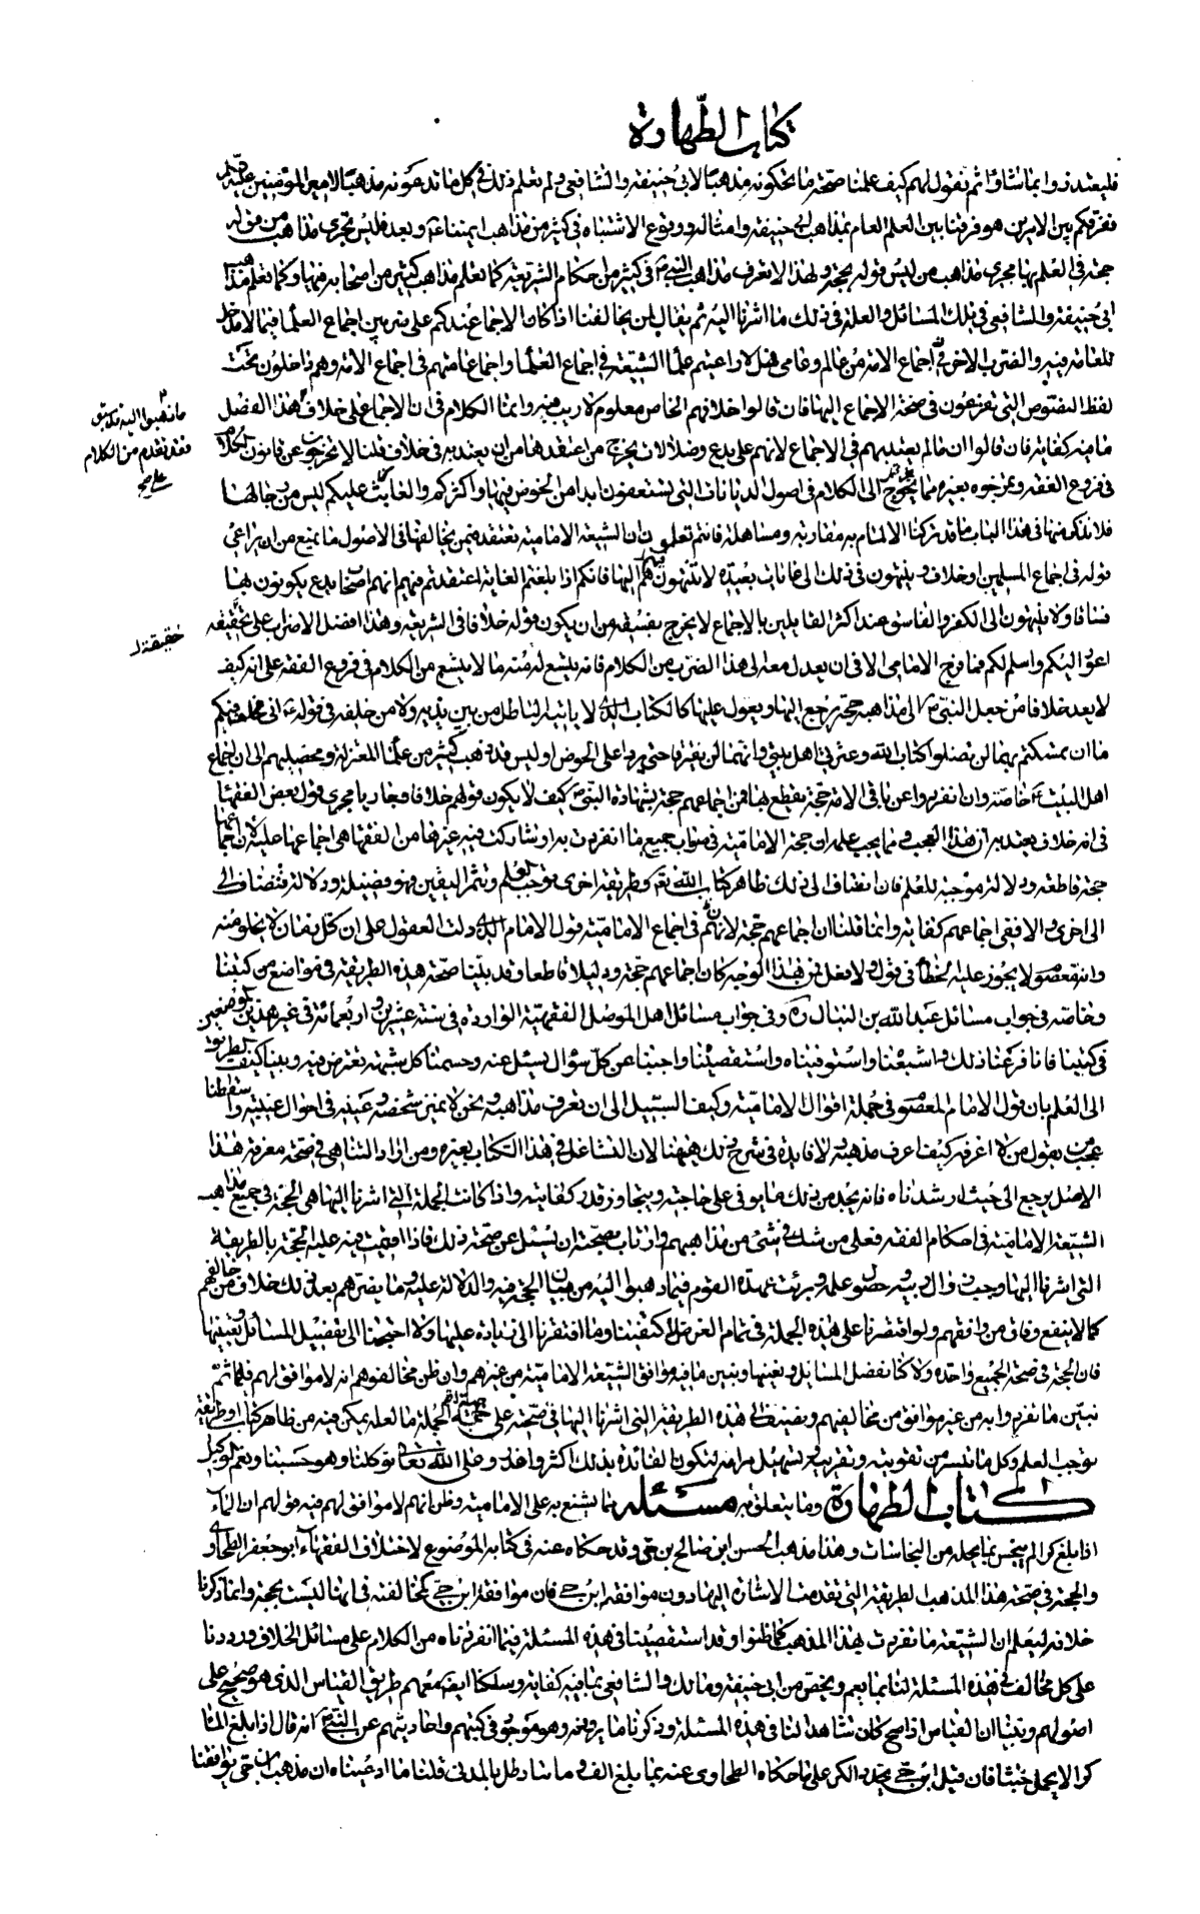 كتاب الطهارة
فليعتذروا بما شاؤا ثم نقول لهم كيف علمنا صحة ما يحكونه مذهبا لابي حنيفة والشافعي ولم نعلم ذلك في كل ما تدعونه مذهبا لامير المؤمنين عليه
ففرقكم بين الامرين هو فرقنا بين العلم العام بمذاهب ابي حنيفة وامثاله ووقوع الاشتباه في كثير من مذاهب ائمتنا وبعد فليس تجري مذاهب من قوله
حجة في العلم بها مجرى مذاهب من ليس قوله بحجة ولهذا لا نعرف مذاهب النبي في كثير من احكام الشريعة كما نعلم مذاهب كثير من اصحابه فيها وكما نعلم مذاهب
ابي حنيفة والشافعي في تلك المسائل والعلة في ذلك ما اشرنا اليه ثم يقال لمن يخالفنا اذا كان الاجماع عندكم على ضربين اجماع العلماء فيما لا مدخل
للعامة فيه والضرب الاخر اجماع الامة من عالم وعامي فهلا راعيتم علماء الشيعة في اجماع العلماء واجماع عامتهم في اجماع الامة وهم داخلون تحت
لفظ النصوص التي تفزعون في صحة الاجماع اليها فان قالوا خلافهم الخاص معلوم لا ريب فيه وانما الكلام في ان الاجماع على خلاف هذا الفصل
ما ذهبوا اليه
فقد تقدم من الكلام
على صح
ما فيه كفاية فان قالوا ان مالم يعتد بهم في الاجماع لانهم على بدع وضلالات يخرج من اعتقدها من ان يعتد به في خلاف قلنا لا تخرجوا عن قانون الكلام
في فروع الفقه وتمزجوه بغيره مما يخرج الى الكلام في اصول الديانات التي تستعفون ابدا من الخوض فيها واكثركم والغالب عليكم ليس من رجالها
فلا بد في هذا الباب ما قد تركنا الالمام به مقاربة ومساهلة فانتم تعلمون ان الشيعة الامامية تعتقد فيمن يخالفها في الاصول ما يمنع من ان يراعى
قوله في اجماع المسلمين او خلاف وينتهون في ذلك الى غايات بعيدة لا تنتهون انتم اليها فانكم اذا بلغتم الغاية اعتقدتم فيهم انهم اصحاب بدع يكونون بها
فساقا ولا ينتهون الى الكفر والفاسق عند اكثر القائلين بالاجماع لا يخرج بفسقه من ان يكون قوله خلافا في الشريعة وهذا افضل الاضراب على تحقيقه
حقيقته
اعود اليكم واسلم لكم فما فرج الامامي الا في ان يعدل معه الى هذا الضرب من الكلام فانه يتسع له منه ما لا يتسع من الكلام في فروع الفقه على انه كيف
لا يعد خلافا من جعل النبي الى مذاهبه حجة يرجع اليها ويعول عليها كالكتاب الذي لا ياتيه الباطل من بين يديه ولا من خلفه في قوله اني مخلف فيكم
ما ان تمسكتم بهما لن تضلوا كتاب الله وعترتي اهل بيتي وانهما لن يفترقا حتى يردا على الحوض اوليس قد ذهب كثير من علماء المعتزلة ومحصليهم الى ان اجماع
اهل البيت خاصة وان انفردوا عن باقي الامة حجة يقطع بها فمن اجماعهم حجة بشهادة النبي كيف لا يكون قولهم خلافا وجاريا مجرى قول بعض الفقهاء
في انه خلاف يعتد به ان هذا لعجب ومما يجب علمه ان حجة الامامية في صواب جميع ما انفردت به او شاركت فيه غيرها من الفقهاء هي اجماعها عليه لان اجماعها
حجة قاطعة ودلالة موجبة للعلم فان انضاف الى ذلك ظاهر كتاب الله تع او طريقة اخرى توجب العلم وتثمر اليقين فهو فضيلة ودلالة تنضاف الى
الى اخرى والا ففي اجماعهم كفاية وانما قلنا ان اجماعهم حجة لان في اجماع الامامية قول الامام الذي دلت العقول على ان كل زمان لا يخلو منه
وانه معصوم لا يجوز عليه الخطأ في قول ولا فعل فمن هذا الوجه كان اجماعهم حجة ودليلا قاطعا وقد بينا صحة هذه الطريقة في مواضع من كتبنا
وخاصة في جواب مسائل عبد الله بن التبان ره وفي جواب مسائل اهل الموصل الفقهية الواردة في سنة عشرين واربعمائة وفي غير هذين الموضعين
في كتبنا فانا فرعنا ذلك واشبعناه واستوفيناه واستقصيناه واجبنا عن كل سؤال يسئل عنه وحسمنا كل شبهة تعترض فيه وبينا كيف الطريق
الى العلم بان قول الامام المعصوم في جملة اقوال الامامية وكيف السبيل الى ان نعرف مذاهبه ونحن لا نميز شخصه وعينه في احوال غيبته واسقطنا
عجب من يقول من لا اعرفه كيف اعرف مذهبه ولا فايدة في شرح ذلك هيهنا لان التشاغل في هذا الكتاب بغيره ومن اراد التناهي في صحة معرفة هذا
الاصل يرجع الى حيث ارشدناه فانه يجد من ذلك ما يوفي على حاجته ويتجاوز قدر كفايته واذا كانت الجملة التي اشرنا اليها هي الحجة في جميع مذاهب
الشيعة الامامية في احكام الفقه فعلى من شك في شيء من مذاهبهم وارتاب بصحته ان يسئل عن صحة ذلك فاذا اقيمت فيه عليه الحجة بالطريقة
التي اشرنا اليها وجب زوال ريبه وحصول علمه وبرئت عهدة القوم فيما ذهبوا اليه من بيان الحجة فيه والدلالة عليه وما يضرهم بعد ذلك خلاف من خالفهم
كما لا ينفع وفاق من وافقهم ولو اقتصرنا على هذه الجملة في تمام الغرض لكفتنا وما افتقرنا الى زيادة عليها ولا احتجنا الى تفصيل المسائل وتعيينها
فان الحجة في صحة الجميع واحدة ولا كنا نفصل المسايل ونعينها ونبين ما فيه موافق الشيعة الامامية من غيرهم وان ظن مخالفوهم انه لا موافق لهم
نبين ما تفردوا به من غير موافق من مخالفيهم ونضيف الى هذه الطريقة التي اشرنا اليها في صحته على الجملة ما لعله يمكن فيه من ظاهر كتاب او طريقة
توجب العلم وكل ما تيسر من تقويته وتقريبه وتسهيل مرامه لتكون الفائدة بذلك اكثر واغزر وعلى الله تعالى توكلنا وهو حسبنا ونعم الوكيل
كتاب الطهارة وما يتعلق به مسئله مما يشنع به على الامامية وظن انهم لا موافق لهم فيه قولهم ان الماء
اذا بلغ كرا لم ينجس بما يحله من النجاسات وهذا مذهب الحسن ابن صالح بن حي وقد حكاه عنه في كتابه الموضوع لاختلاف الفقهاء ابو جعفر الطحاوي
والحجة في صحة هذا المذهب الطريقة التي تقدمت الاشارة اليها دون موافقة ابن حي فان موافقة ابن حي كمخالفته في انها ليست بحجة وانما ذكرنا
خلافه ليعلم ان الشيعة ما تفردت بهذا المذهب كما ظنوا وقد استقصينا في هذه المسئلة فيما افردناه من الكلام على مسائل الخلاف ورددنا
على كل مخالف في هذه المسئلة لنا بما يعم ويخص من ابي حنيفة ومالك والشافعي بما فيه كفاية وسلكنا ايضا معهم طريق القياس الذي هو صحيح على
اصولهم وبينا ان القياس اذا صح كان شاهدا لنا في هذه المسئلة وذكرنا ما يروونه وهو موجود في كتبهم واحاديثهم عن النبي انه قال اذا بلغ الماء
كرا لا يحمل خبثا فان قيل ابن حي يحد الكر على ما حكاه الطحاوي عنه بما بلغ الف وماتا رطل بالمدني قلنا ما ادعيناه ان مذهب ابن حي يوافقنا